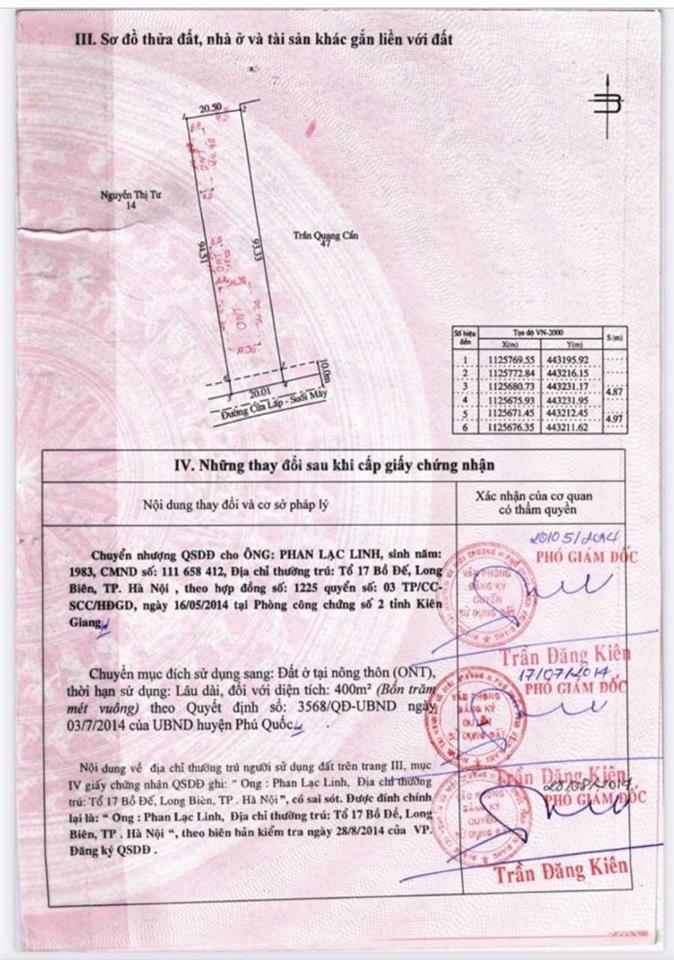 III. Sơ đồ thửa đất, nhà ở và tài sản khác gắn liền với đất
20.50
1
2
Nguyễn Thị Tư
14
Trần Quang Cẩn
47
94.51
93.33
ONT
ONT
20.01
10.0m
Đường Cửa Lấp - Suối Mây
Số hiệu điểm Tọa độ VN-2000 S (m)
X(m) Y(m)
1 1125769.55 443195.92
2 1125772.84 443216.15
3 1125680.73 443231.17
4.87
4 1125675.93 443231.95
5 1125671.45 443212.45
4.97
6 1125676.35 443211.62
IV. Những thay đổi sau khi cấp giấy chứng nhận
Nội dung thay đổi và cơ sở pháp lý
Xác nhận của cơ quan
có thẩm quyền
Chuyển nhượng QSDĐ cho ÔNG: PHAN LẠC LINH, sinh năm:
1983, CMND số: 111 658 412, Địa chỉ thường trú: Tổ 17 Bồ Đế, Long
Biên, TP. Hà Nội , theo hợp đồng số: 1225 quyển số: 03 TP/CC-
SCC/HĐGD, ngày 16/05/2014 tại Phòng công chứng số 2 tỉnh Kiên
Giang.
PHÓ GIÁM ĐỐC
VĂN PHÒNG
ĐĂNG KÝ
QUYỀN
SỬ DỤNG ĐẤT
Trần Đăng Kiên
Chuyển mục đích sử dụng sang: Đất ở tại nông thôn (ONT),
thời hạn sử dụng: Lâu dài, đối với diện tích: 400m² (Bốn trăm
mét vuông) theo Quyết định số: 3568/QĐ-UBND ngày
03/7/2014 của UBND huyện Phú Quốc.
17/07/2014
PHÓ GIÁM ĐỐC
VĂN PHÒNG
ĐĂNG KÝ
QUYỀN
SỬ DỤNG ĐẤT
Trần Đăng Kiên
Nội dung về địa chỉ thường trú người sử dụng đất trên trang III, mục
IV giấy chứng nhận QSDĐ ghi: " Ông : Phan Lạc Linh, Địa chỉ thường
trú: Tổ 17 Bồ Đế, Long Biên, TP . Hà Nội ", có sai sót. Được đính chính
lại là: " Ông : Phan Lạc Linh, Địa chỉ thường trú: Tổ 17 Bồ Đề, Long
Biên, TP . Hà Nội ", theo biên bản kiểm tra ngày 28/8/2014 của VP.
Đăng ký QSDĐ .
28/08/2014
PHÓ GIÁM ĐỐC
VĂN PHÒNG
ĐĂNG KÝ
QUYỀN
SỬ DỤNG ĐẤT
Trần Đăng Kiên